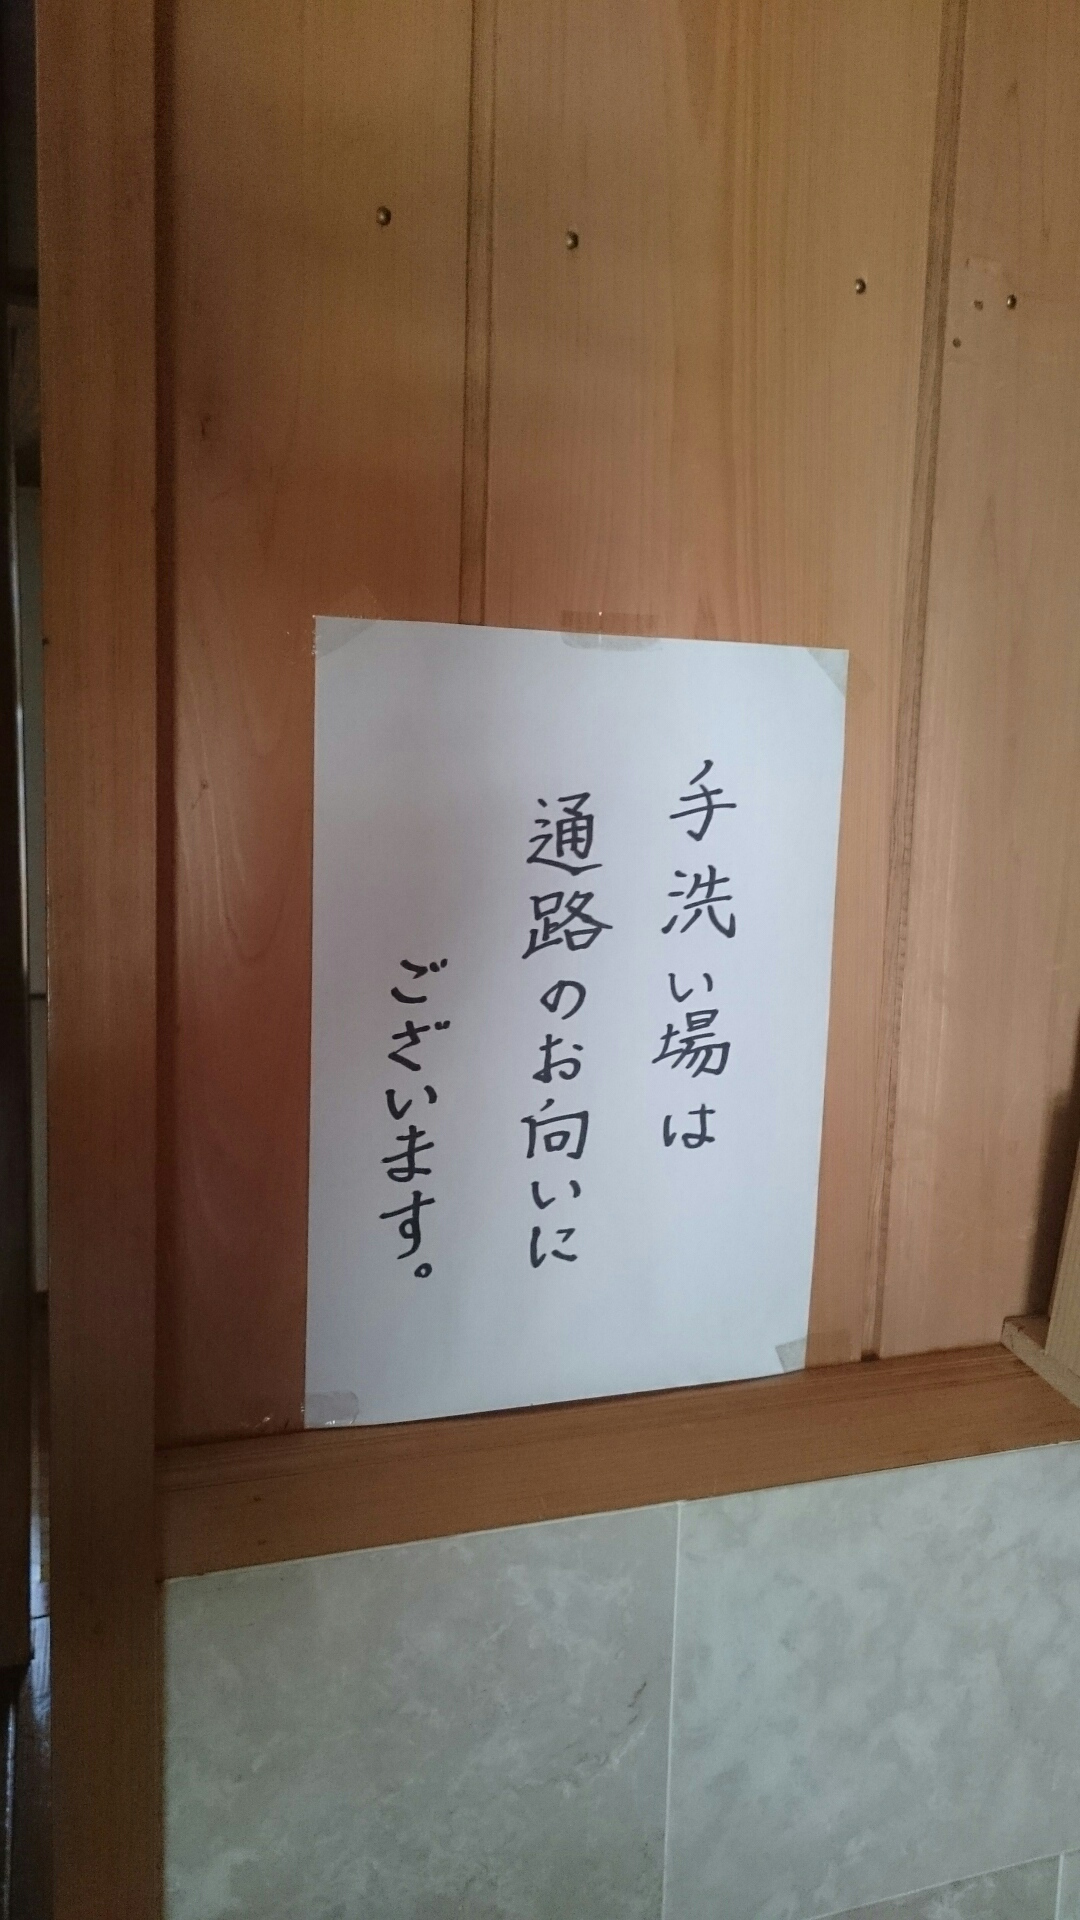 手洗い場は
通路のお向いに
ございます。